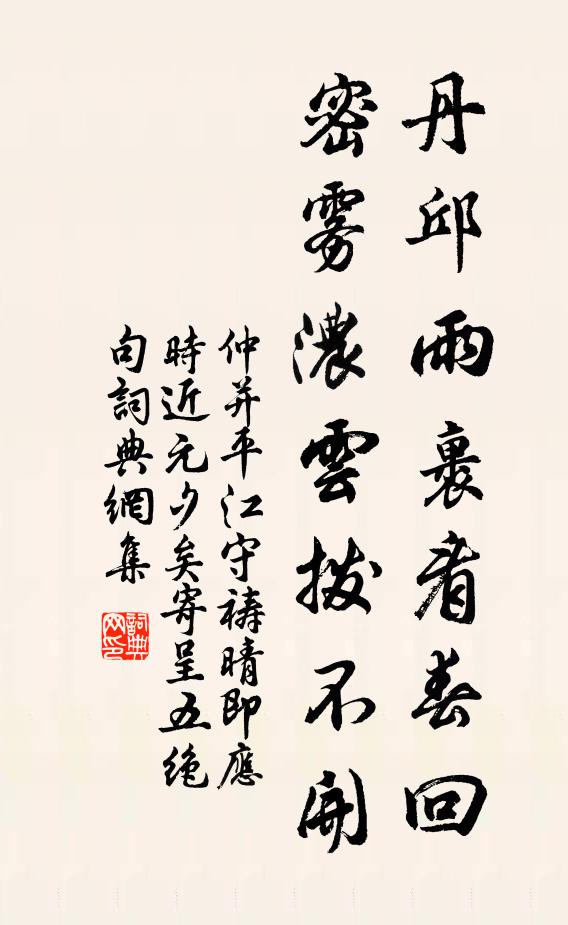 丹邱雨裹看春回
密雾濃雲撥不開
仲并平江守禱晴即應
時近元夕矣寄呈五绝
句詞典網集
詞典网印